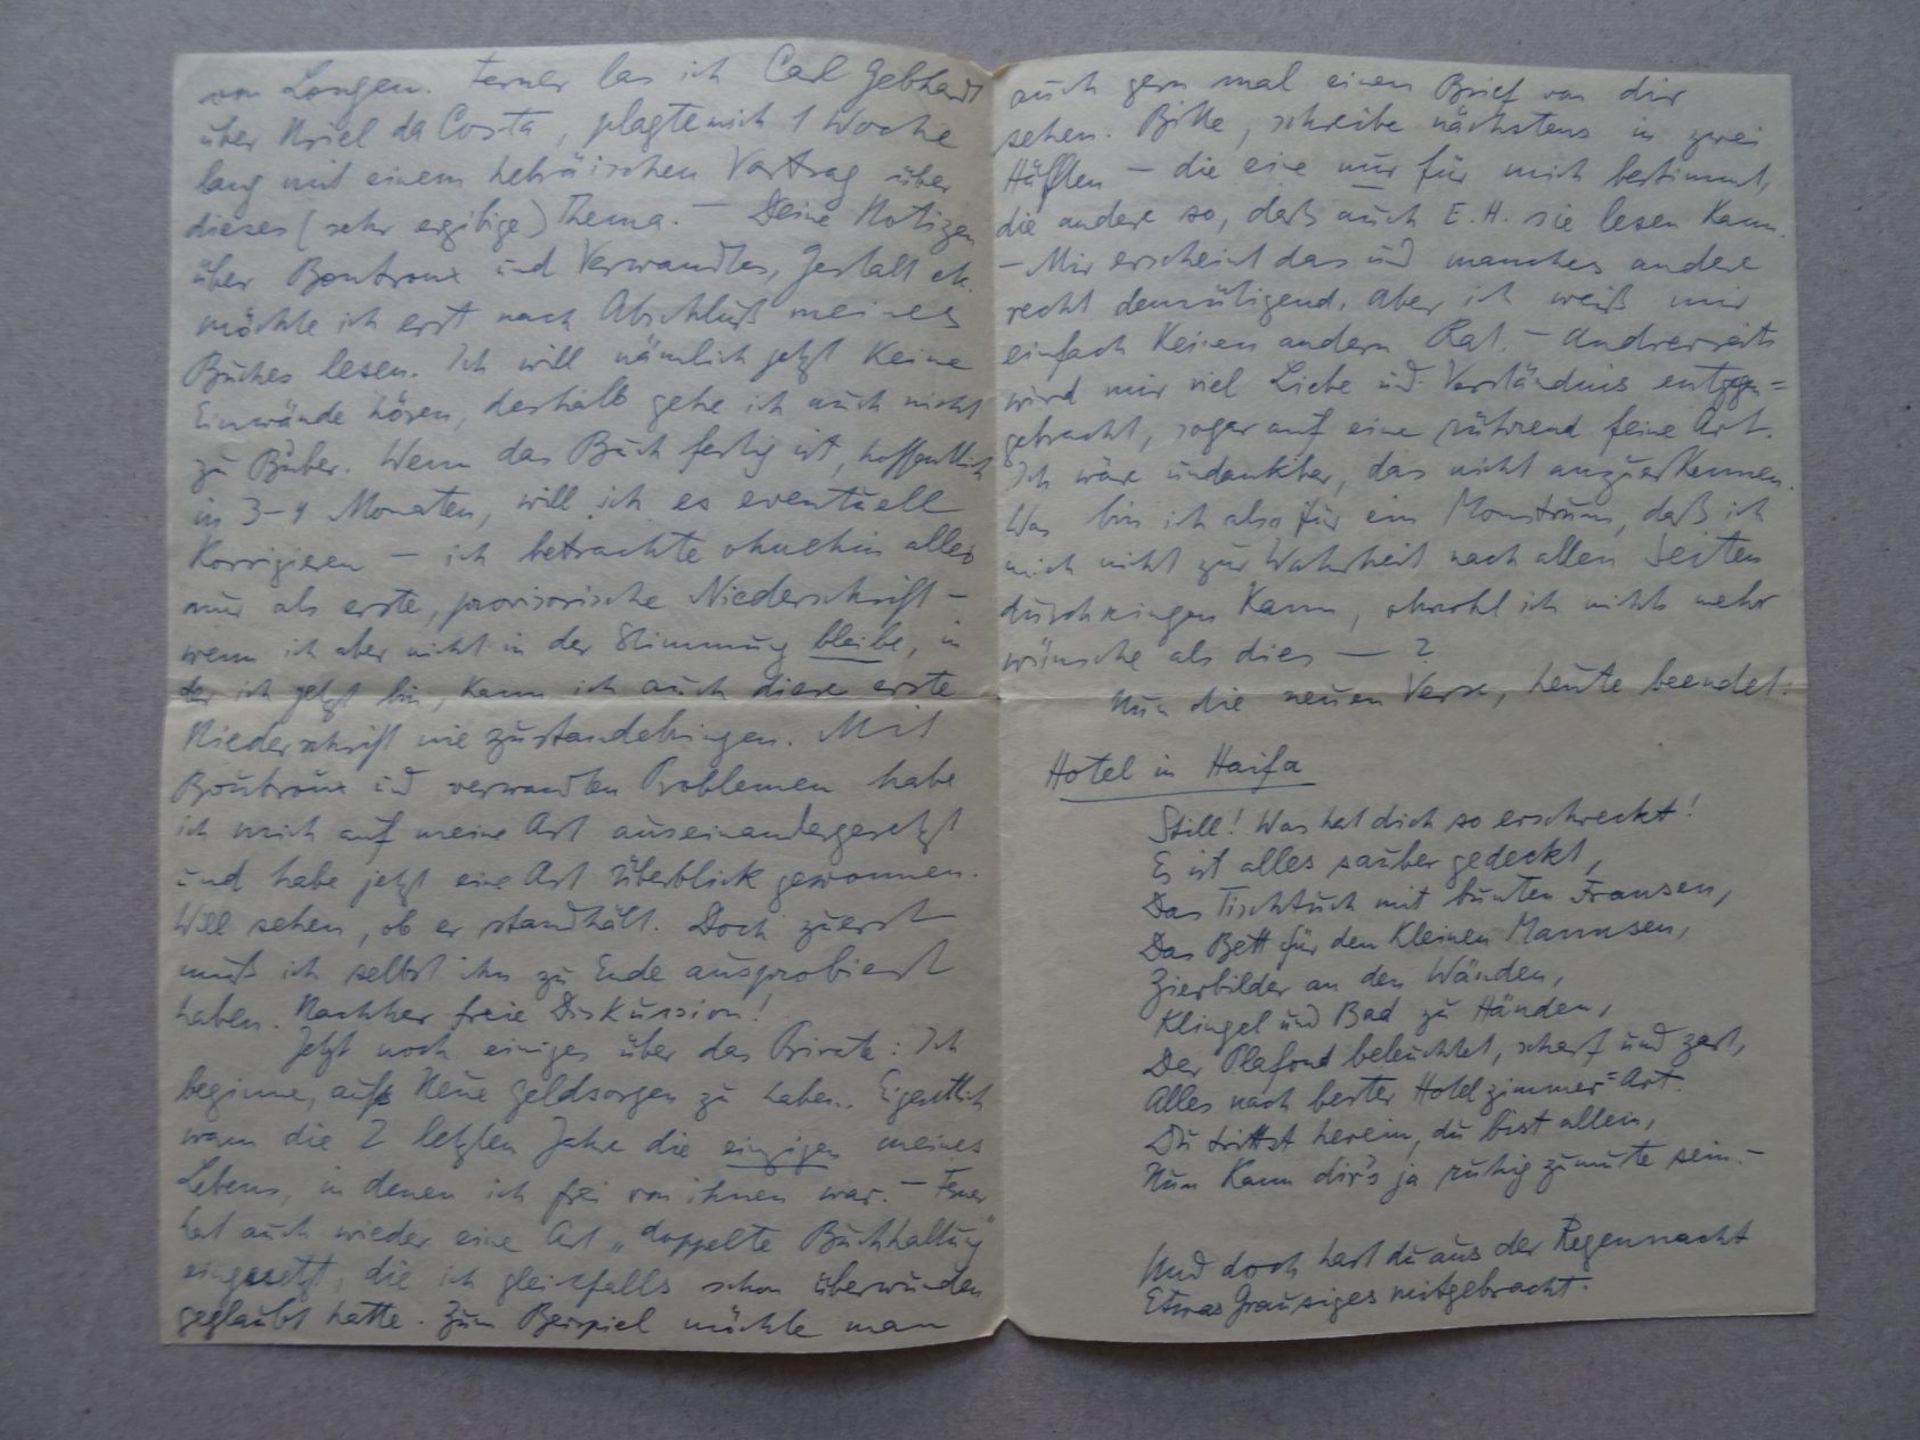 von Longen. Ferner las ich Carl Gebhardt
über Uriel da Costa, plagte mich 1 Woche
lang mit einem hebräischen Vortrag über
dieses (sehr ergibige) Thema. — Deine Notizen
über Boutroux und Verwandtes, Gestalt etc.
möchte ich erst nach Abschluß meines
Buches lesen. Ich will nämlich jetzt keine
Einwände hören, deshalb gehe ich auch nicht
zu Buber. Wenn das Buch fertig ist, hoffentlich
in 3-4 Monaten, will ich es eventuell
korrigieren — ich betrachte ohnehin alles
nur als erste, provisorische Niederschrift —
wenn ich aber nicht in der Stimmung bleibe, in
der ich jetzt bin, kann ich auch diese erste
Niederschrift nie zustandebringen. Mit
Boutroux und verwandten Problemen habe
ich mich auf meine Art auseinandergesetzt
und habe jetzt eine Art Überblick gewonnen.
Will sehen, ob er standhält. Doch zuerst
muß ich selbst ihn zu Ende ausprobiert
haben. Nachher freie Diskussion!
Jetzt noch einiges über das Private: Ich
beginne, aufs Neue Geldsorgen zu haben. Eigentlich
waren die 2 letzten Jahre die einzigen meines
Lebens, in denen ich frei von ihnen war. — Ferner
hat auch wieder eine Art „doppelte Buchhaltung"
eingesetzt, die ich gleichfalls schon überwunden
geglaubt hatte. Zum Beispiel möchte man
auch gern mal einen Brief von dir
sehen. Bitte, schreibe nächstens in zwei
Hälften — die eine nur für mich bestimmt,
die andere so, daß auch E. H. sie lesen kann.
— Mir erscheint das und manches andere
recht demütigend. Aber ich weiß mir
einfach keinen andern Rat. — Andrerseits
wird mir viel Liebe und Verständnis entgegen=
gebracht, sogar auf eine rührend feine Art.
Ich wäre undankbar, das nicht anzuerkennen.
Was bin ich also für ein Monstrum, daß ich
mich nicht zur Wahrheit nach allen Seiten
durchringen kann, obwohl ich nichts mehr
wünsche als dies — ?
Nun die neuen Verse, heute beendet:
Hotel in Haifa
Still! Was hat dich so erschreckt!
Es ist alles sauber gedeckt,
Das Tischtuch mit bunten Fransen,
Das Bett für den kleinen Mannsen,
Zierbilder an den Wänden,
Klingel und Bad zu Händen,
Der Plafond beleuchtet, scharf und zart,
Alles nach bester Hotelzimmer=Art.
Du trittst herein, du bist allein,
Nun kann dir's ja ruhig zumute sein. —
Und doch hast du aus der Regennacht
Etwas Grausiges mitgebracht.